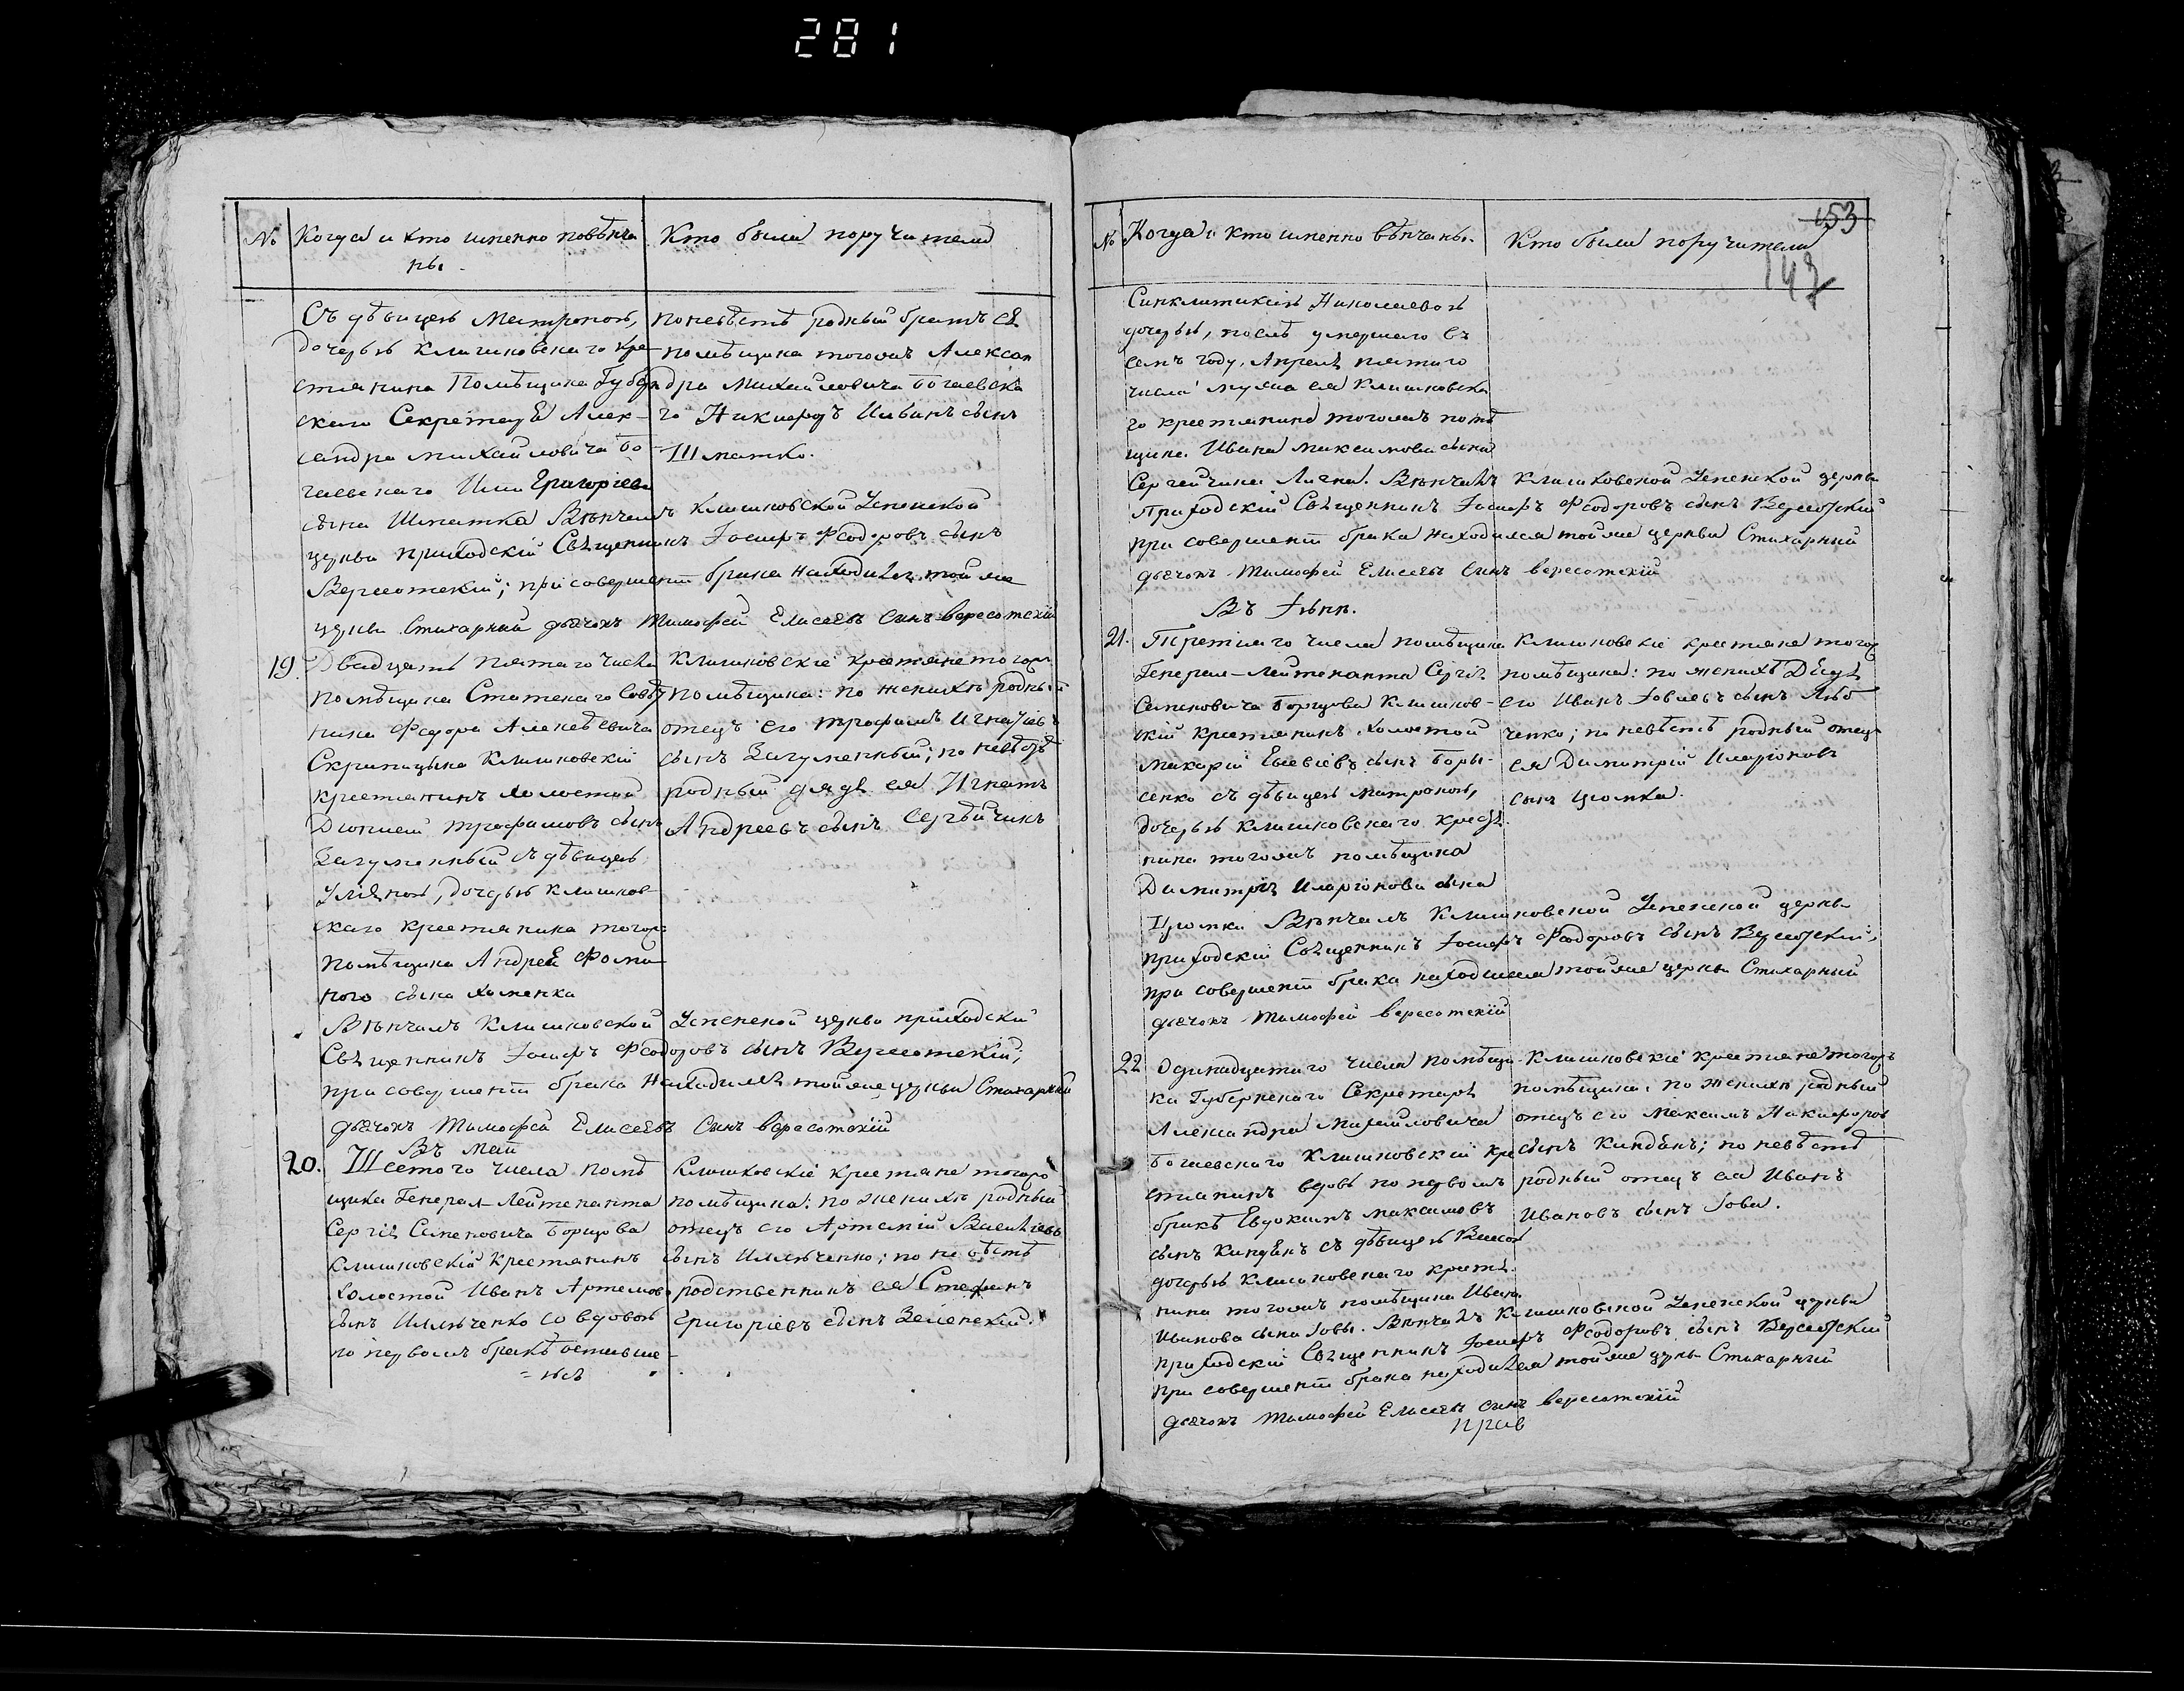 281
№ Когда и кто именно повѣнча
ны.
Кто были поручители
Съ дѣвицею Матроною,
дочерью Клишковскаго кре-
стьянина Помѣщика Губерн
скаго Секретаря Алек-
сандра Михайловича Бо-
гаевскаго Григоріева
сына Шматка Вѣнчалъ Клишковской Успенской
церкви приходскій Священникъ Іосифъ Феодоровъ сынъ
Вересотскій; при совершеніи брака находился тойже
церкви Стихарный дьячокъ Тимофей Елисеевъ Сынъ Вересотскій
по невѣстѣ родный братъ ея
помѣщика тогожъ Алексан
дра Михайловича Богаевска
го Никифоръ сынъ
Шматко.
19. Двадцать пятаго числа
помѣщика Статскаго Совѣт
ника Федора Алексѣевича
Скрипицына Клишковскій
крестьянинъ холостой
Діонисій Трофимовъ сынъ
Загуменный съ дѣвицею
Уліяною, дочерью Клишков-
скаго крестьянина тогож
помѣщика Андрея Фоми-
ного сына Хоменка
Клишковскіе крестьяне тогож
помѣщика: по женихѣ родный
отецъ его Трофимъ Игнатіевъ
сынъ Загуменный; по невѣстѣ
родный дядя ея Игнатъ
Андреевъ сынъ Сергѣйчикъ
Вѣнчалъ Клишковской Успенской церкви приходскій
Священникъ Іосифъ Феодоровъ сынъ Вересотскій;
при совершеніи брака находился тойже церкви Стихарный
дьячокъ Тимофей Елисеевъ Сынъ Вересотскій
Въ Маи
20. Шестого числа помѣ
щика Генерал-Лейтенанта
Сергія Семеновича Борщова
Клишковскій Крестьянинъ
холостой Иванъ Артемовъ
сынъ Ильченко со вдовою
по первомъ бракѣ оставше-
=юся
Клишковскіе крестьяне тогож
помѣщика: по женихѣ родный
отецъ его Артемій Василіевъ
сынъ Ильченко; по невѣстѣ
родственникъ ея Стефанъ
Григоріевъ сынъ Зеленскій.
153
147
№ Когда и кто именно вѣнчаны.
Кто были поручители
Синклитикіею Николаевою
дочерью, послѣ умершаго въ
семъ году, Апреля пятаго
числа мужа ея Клишковска
го крестьянина тогожъ помѣ
щика Ивана Максимова сына
Сергейчика Вѣнчалъ Клишковской Успенской церкви
Приходскій Священникъ Іосифъ Феодоровъ сынъ Вересотскій
при совершеніи брака находился тойже церкви Стихарный
дьячокъ Тимофей Елисеевъ Сынъ Вересотскій
Въ Іюнѣ.
21. Третіяго числа помѣщика
Генерал-Лейтенанта Сергія
Семеновича Борщова Клишков-
скій крестьянинъ холостой
Макарій сынъ Боры-
сенко съ дѣвицею Матроною,
дочерью Клишковскаго крестья
нина тогожъ помѣщика
Димитрія Иларіонова сына
Цюпки Вѣнчалъ Клишковской Успенской церкви
приходскій Священникъ Іосифъ Феодоровъ сынъ Вересотскій;
при совершеніи брака находился тойже церкви Стихарный
дьячокъ Тимофей Вересотскій
Клишковскіе крестьяне тогож
помѣщика: по женихѣ Дядя
его Иванъ Іовлевъ сынъ
ченко; по невѣстѣ родный отец
ея Димитрій Иларіоновъ
сынъ Цюпка.
22 Одинадцатаго числа помѣщи-
ка Губернскаго Секретаря
Александра Михайловича
Богаевскаго Клишковскій кре
стьянинъ вдовъ по первомъ
бракѣ Евдокимъ Максимовъ
сынъ Киндѣнъ съ дѣвицею
дочерью Клишковскаго крестья
нина тогожъ помѣщика Ивана
Иванова сына Іовы. Вѣнчалъ Клишковской Успенской церкви
приходскій Священникъ Іосифъ Феодоровъ сынъ Вересотскій
при совершеніи брака находился тойже церкви Стихарный
дьячокъ Тимофей Елисеевъ Сынъ Вересотскій
Клишковскіе крестьяне тогожъ
помѣщика: по женихѣ родный
отецъ его Максимъ Никифоров
сынъ Киндѣнъ; по невѣстѣ
родный отецъ ея Иванъ
Ивановъ сынъ Іова.